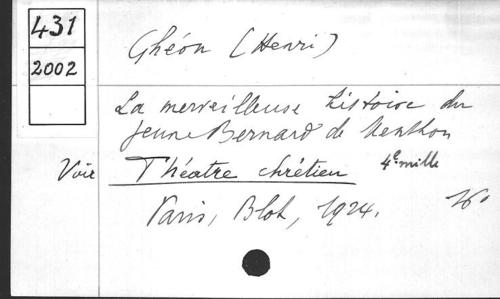 431
2002
Ghéon (Henri)
La merveilleuse histoire du
jeune Bernard de Menthon
Voir Théatre chrétien 4e mille
Paris, Blot, 1924. 16°